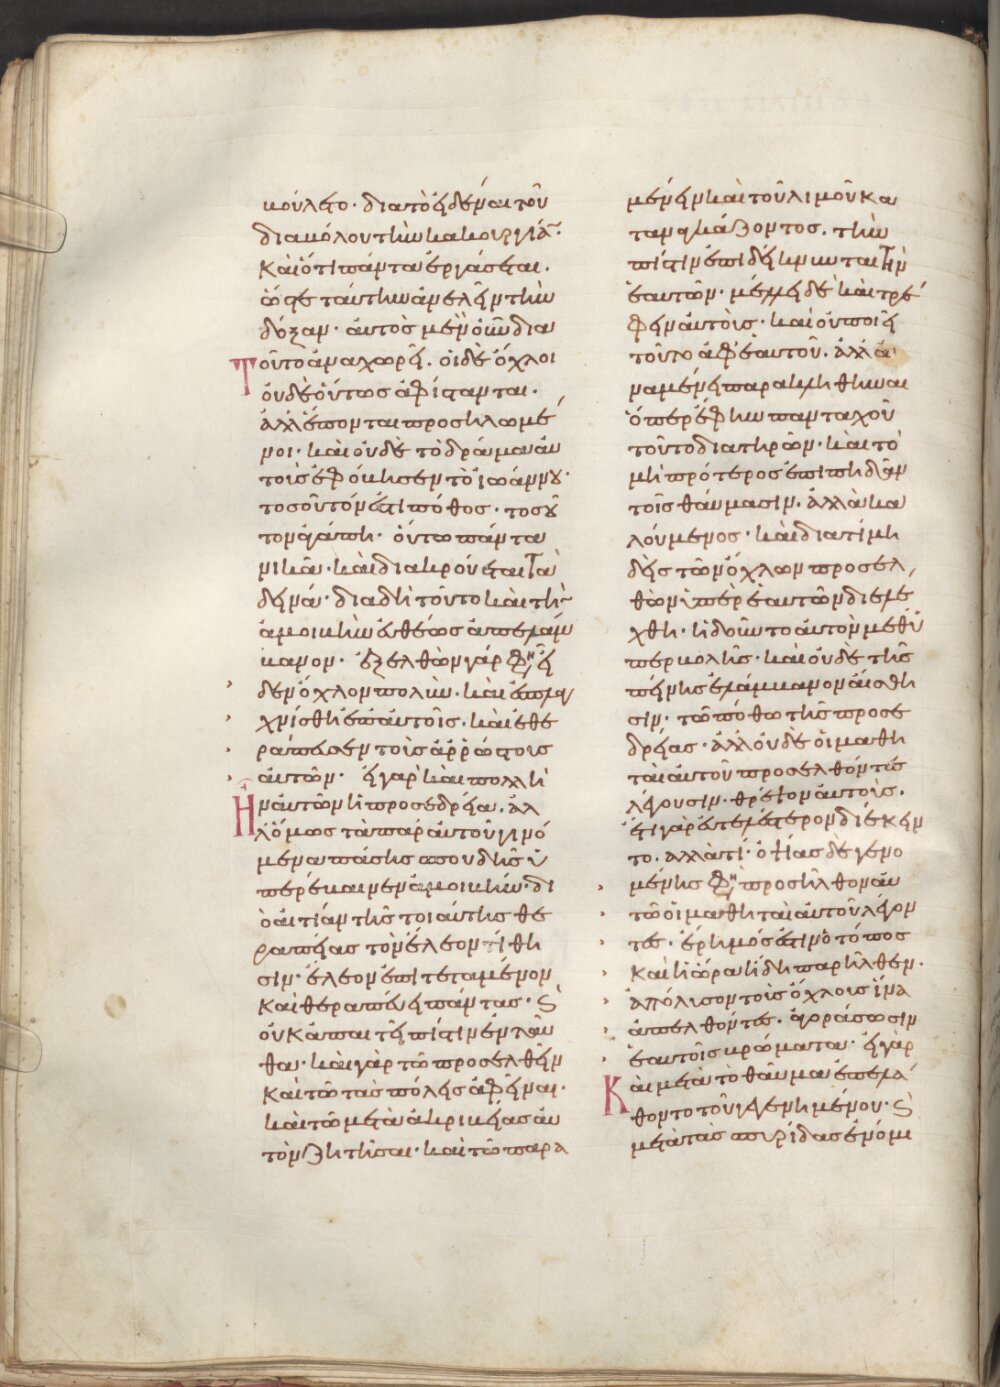 βούλετο· διατὸ εἰδέναι τοῦ
διαβόλου τὴν κακουργίαν·
Καὶ ὅτι πάντα ἐργάσεται.
ὥστε ταύτην ἀνελεῖν τὴν
δόξαν· ἀυτὸς μὲν οὖν δια
Τοῦτο ἀναχωρεῖ. ὁι δὲ ὄχλοι
ὀυδὲ ὅυτως ἀφίστανται.
ἀλλ ἕπονται προσηλωμέ
νοι· καὶ ὀυδὲ τὸ δρᾶμα ἀυ
τοὺς ἐφόβησεν τὸ ἰωάννου·
τοσοῦτόν ἐστι πόθος· τοσοῦ
τον ἀγάπη· ὅυτω πάντα
νικᾶ· καὶ διακρούεται τὰ
δεινά· διαδὴ τοῦτο καὶ τὴν
ἀμοιβὴν ἐυθέως ἀπελάμ
βανον· ἐξελθὼν γάρ φη εἶ
δεν ὄχλον πολὺν. καὶ ἐσπλαγ
χνίσθη ἐπ ἀυτοῖς. καὶ ἐθε
ράπευσεν τοὺς ἀρρώστους
ἀυτῶν· ἐι γὰρ καὶ πολλὴ
Ἦν ἀυτῶν ἡ προσεδρεία. ἀλ
λ ὅμως τὰ παρ ἀυτοῦ γινό
μενα πάσης σπουδῆς ὑ
περέβαινεν ἀμοιβήν· δι
ὸ ἀιτίαν τῆς τοιάυτης θε
ραπείας τὸν ἔλεον τίθη
σιν· ἔλεον ἐπιτεταμένον
Καὶ θεραπέυει πάντας· ϗ
ὀυκ ἀπαιτεῖ πίστιν ἐνταῦ
θα· καὶ γὰρ τῶ προσελθεῖν
Καὶ τῶ τὰς πόλεις ἀφεῖναι·
καὶ τῶ μετὰ ἀκριβείας ἀυ
τὸν ζητῆσαι· καὶ τῶ παρα
μένειν καὶ τοῦ λιμοῦ κα
ταναγκάζοντος. τὴν
πίστιν ἐπιδείκνυνται τὴν
ἑαυτῶν· μέλλει δὲ καὶ τρέ
φειν ἀυτοὺς· καὶ ὀυ ποιεῖ
τοῦτο ἀφ ἑαυτοῦ. ἀλλ ἀ
ναμένει παρακληθῆναι
ὅπερ ἔφην πανταχοῦ
τοῦτο διατηρῶν· καὶ τὸ
μὴ πρότερος ἐπιπηδᾶν
τοῖς θάυμασιν. ἀλλὰ κα
λούμενος· καὶ διατί μη
δεὶς τῶν ὄχλων προσελ
θὼν ὑπὲρ ἑαυτῶν διελέ
χθη· ἠδοῦντο ἀυτὸν μεθ ὑ
περβολῆς· καὶ ὀυδὲ τῆς
πείνης ἐλάμβανον ἄισθη
σιν· τῶ πόθω τῆς προσε
δρείας· ἀλλ ὀυδὲ ὁι μαθη
ταὶ ἀυτοῦ προσελθόντες
λέγουσιν· θρέψον ἀυτούς.
ἔτι γὰρ ἀτελέστερον διέκειν
το. ἀλλὰ τί· ὀψίας δὲ γενο
μένης φη προσῆλθον ἀυ
τῶ ὁι μαθηταὶ ἀυτοῦ λέγον
τες· ἔρημός ἐστιν ὁ τόπος
Καὶ ἡ ὥρα ἤδη παρῆλθεν·
ἀπόλυσον τοὺς ὄχλους ἵνα
ἀπελθόντες· ἀγοράσωσιν
ἑαυτοῖς βρώματα· ἐι γαρ
Καὶ μετὰ τὸ θαῦμα ἐπελά
θοντο τοῦ γεγενημένου· ϗ
μετὰ τὰς σπυρίδας ἐνόμι